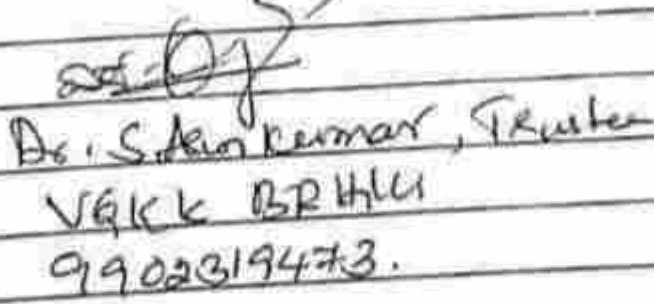 Dr. S. Arun Kumar, Trustee
VGKK BR Hills
9902319473.